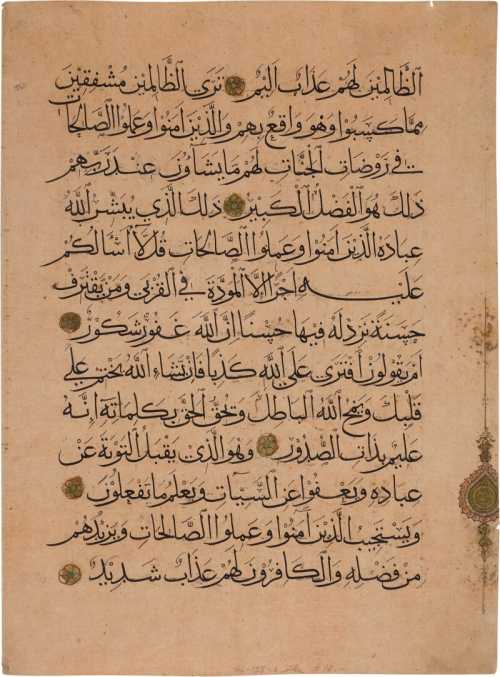 الظالمين لهم عذاب اليم ترى الظالمين مشفقين
مما كسبوا وهو واقع بهم والذين امنوا وعملوا الصالحات
في روضات الجنات لهم ما يشاون عند ربهم
ذلك هو الفضل الكبير ذلك الذي يبشر الله
عباده الذين امنوا وعملوا الصالحات قل لا اسالكم
عليه اجرا الا المودة في القربى ومن يقترف
حسنة نزد له فيها حسنا ان الله غفور شكور
ام يقولون افترى على الله كذبا فان يشاء الله يختم على
قلبك ويمح الله الباطل ويحق الحق بكلماته انه
عليم بذات الصدور وهو الذي يقبل التوبة عن
عباده ويعفوا عن السيئات ويعلم ما تفعلون
ويستجيب الذين امنوا وعملوا الصالحات ويزيدهم
من فضله والكافرون لهم عذاب شديد